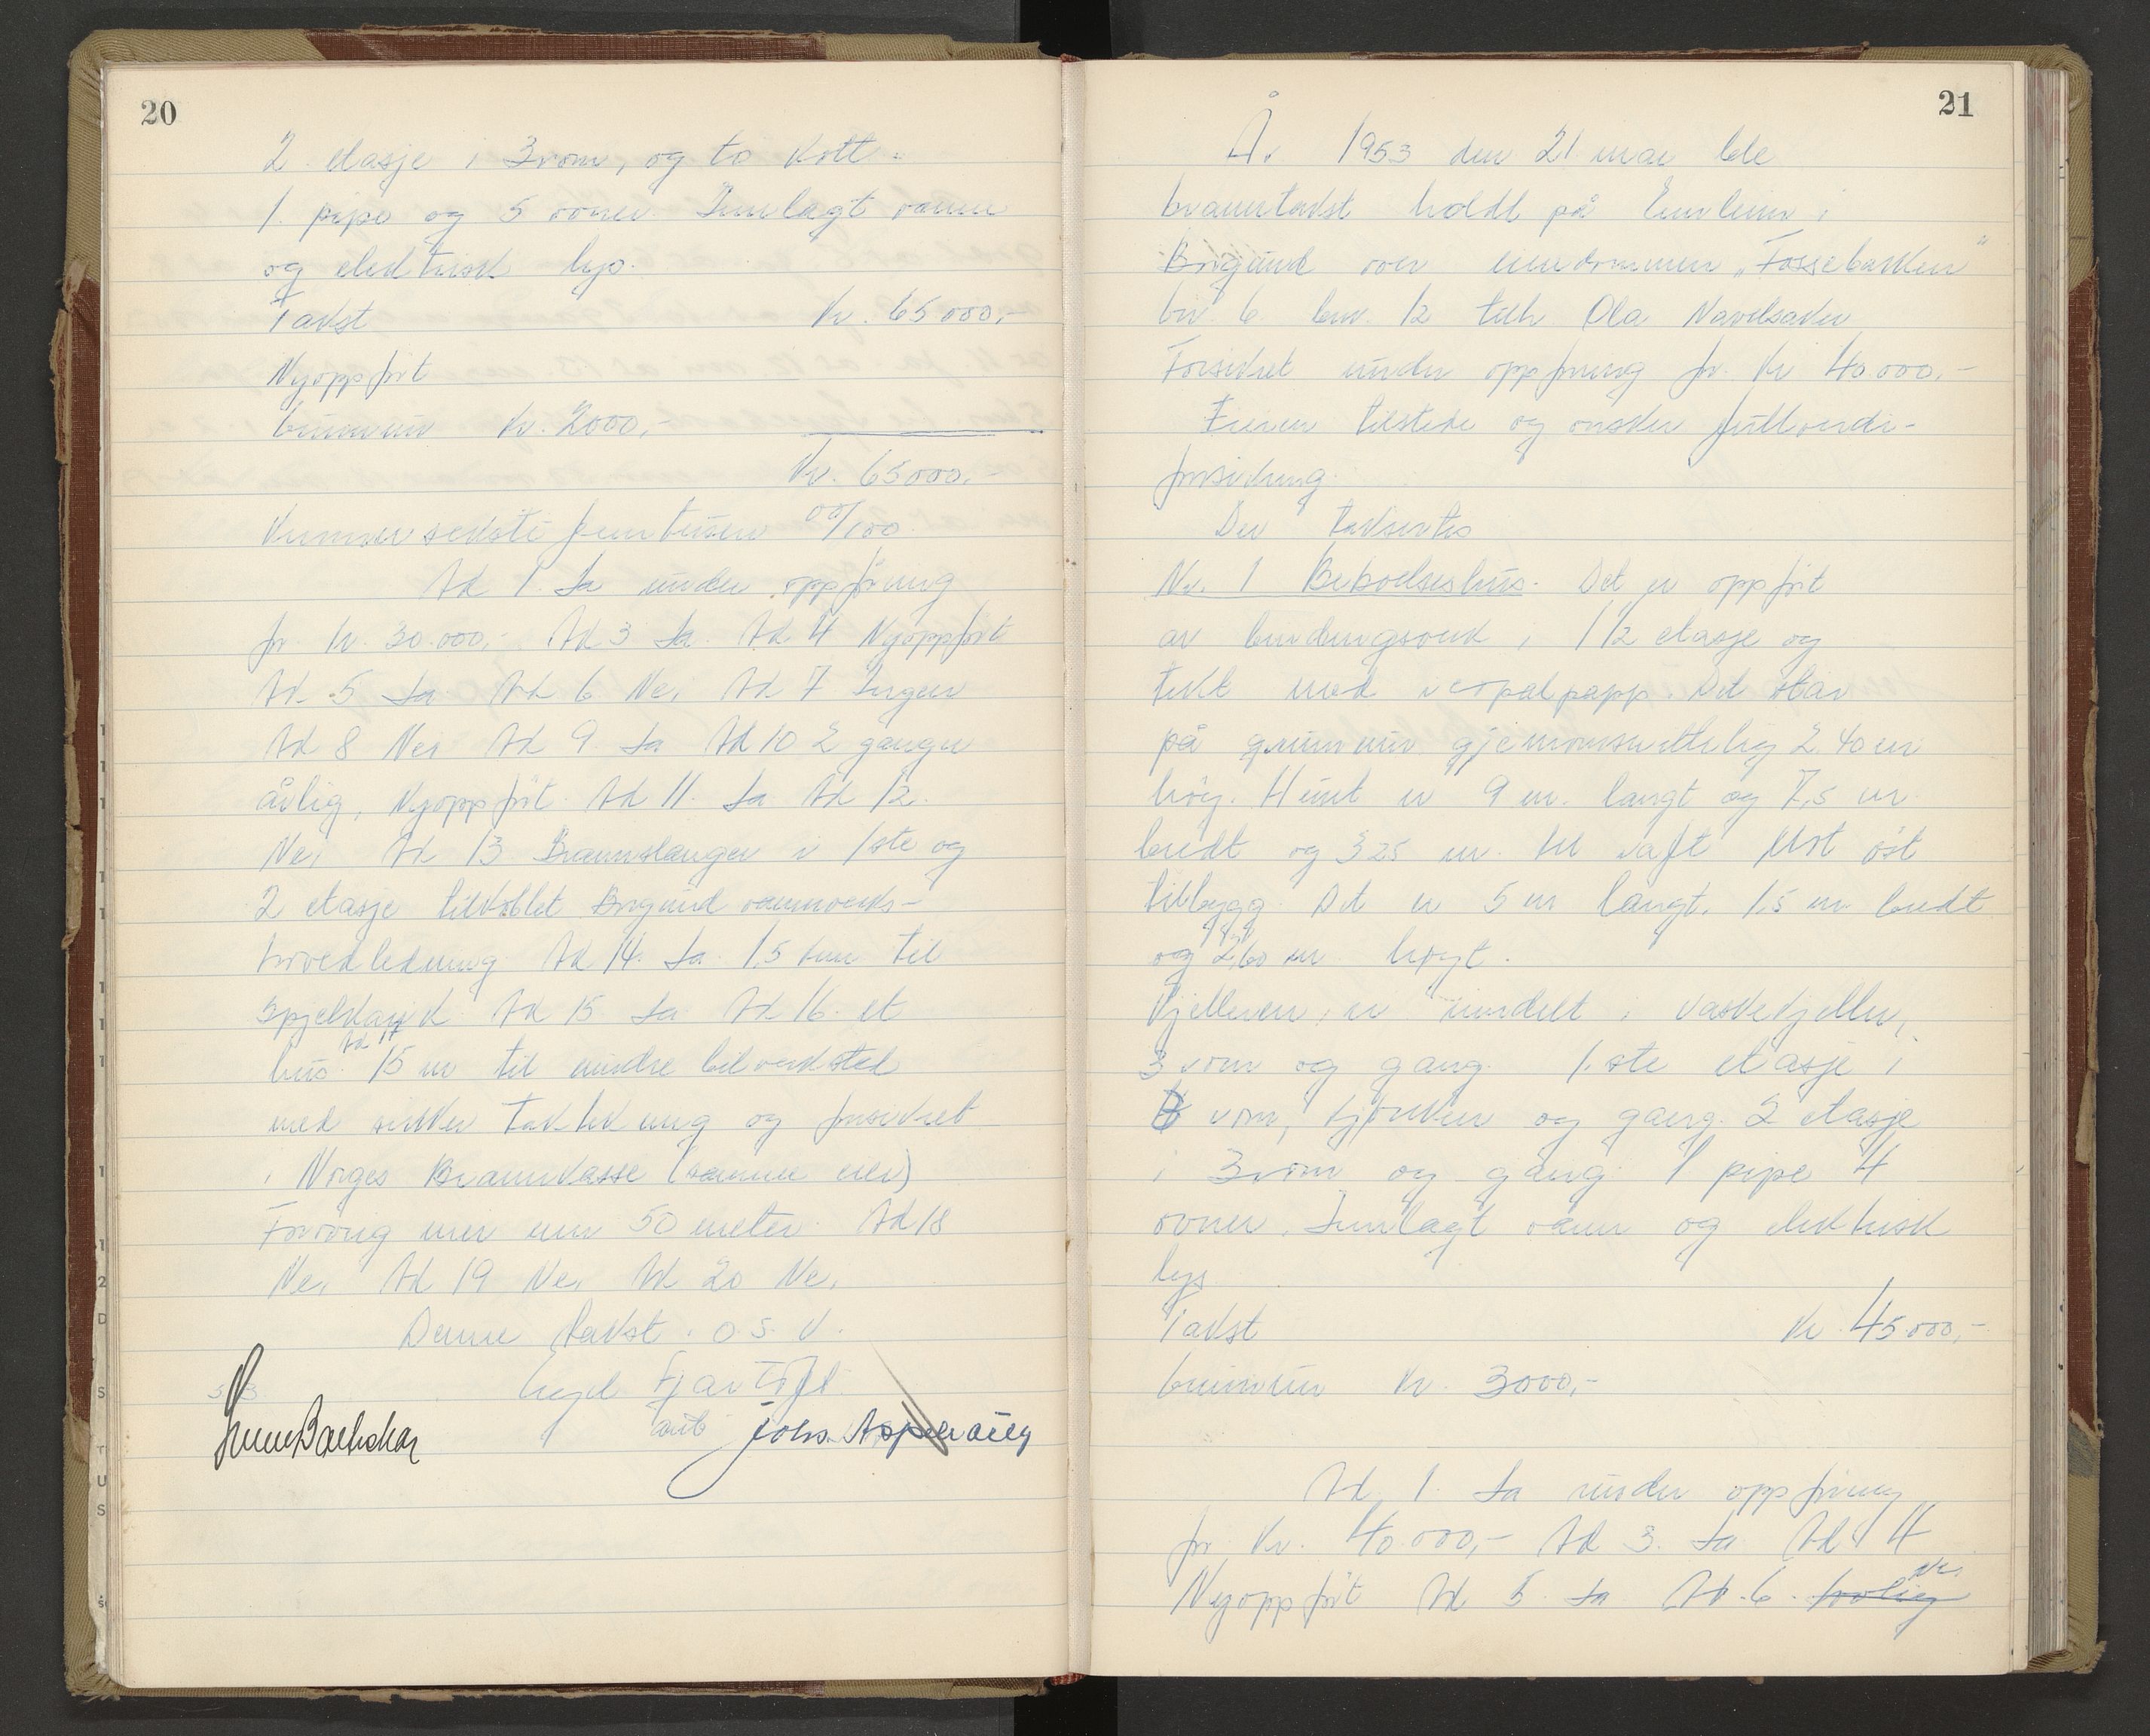 20
2 etasje i 3 rom, og to kott.
1. pipe og 5 ovner. Innlagt vann
og elektrisk lys.
Takst Kr. 65000,-
Nyoppført
Grunnmur Kr. 2000,-
Kr. 65000.-
Kroner sekstifemtusen 00/100
Ad 1. Ja under oppføring
for kr. 30.000,- Ad 3 Ja. Ad 4 Nyoppført
Ad 5 Ja Ad 6 Nei Ad 7 Ingen
Ad 8 Nei Ad 9 Ja Ad 10 2 ganger
årlig, Nyoppført. Ad 11. Ja Ad 12.
Nei Ad 13 Brannslanger i 1ste og
2 etasje tilkoblet Brigund vannverks-
hovedledning. Ad 14. Ja. 1,5 km til
Spjelkavik Ad 15 Ja Ad 16. et
hus. Ad 17 15 m til mindre bilverksted
med sikker taktekking og forsikret
i Norges Brannkasse (samme eier)
Forøvrig mer enn 50 meter. Ad 18
Nei Ad 19 Nei Ad 20 Nei
Denne takst. o.s.v.
Fjørtoft
Johs.
21
År 1953 den 21 mai ble
branntakst holdt på Emblem i
Brigund over eiendommen „Fossebakken"
bnr. 12 tilh Ola
Forsikret under oppføring for Kr 40.000.-
Eieren tilstede og ønsker fullverdi-
forsikring.
Der takseres
Nr. 1 Beboelseshus. Det er oppført
av bindingsverk i 1 1/2 etasje og
tekt med icopalpapp. Det står
på grunnmur gjennomsnittlig 2.40 m
høg. Huset er 9 m. langt og 7,5 m
bredt og 3 25 m. til raft Mot øst
tilbygg. Det er 5 m langt, 1,5 m bredt
og 2,60 m høyt.
Kjelleren er inndelt i vaskekjeller,
3 rom og gang. 1.ste etasje i
rom, kjøkken og gang. 2 etasje
i 3 rom og gang 1 pipe 4
ovner. Innlagt vann og elektrisk
lys
Takst Kr. 45.000,-
Grunnmur Kr. 3000,-
Ad 1. Ja under oppføring
for Kr. 40.000,- Ad 3. Ja Ad 4
Nyoppført Ad 5. Ja Ad. 6. Nei